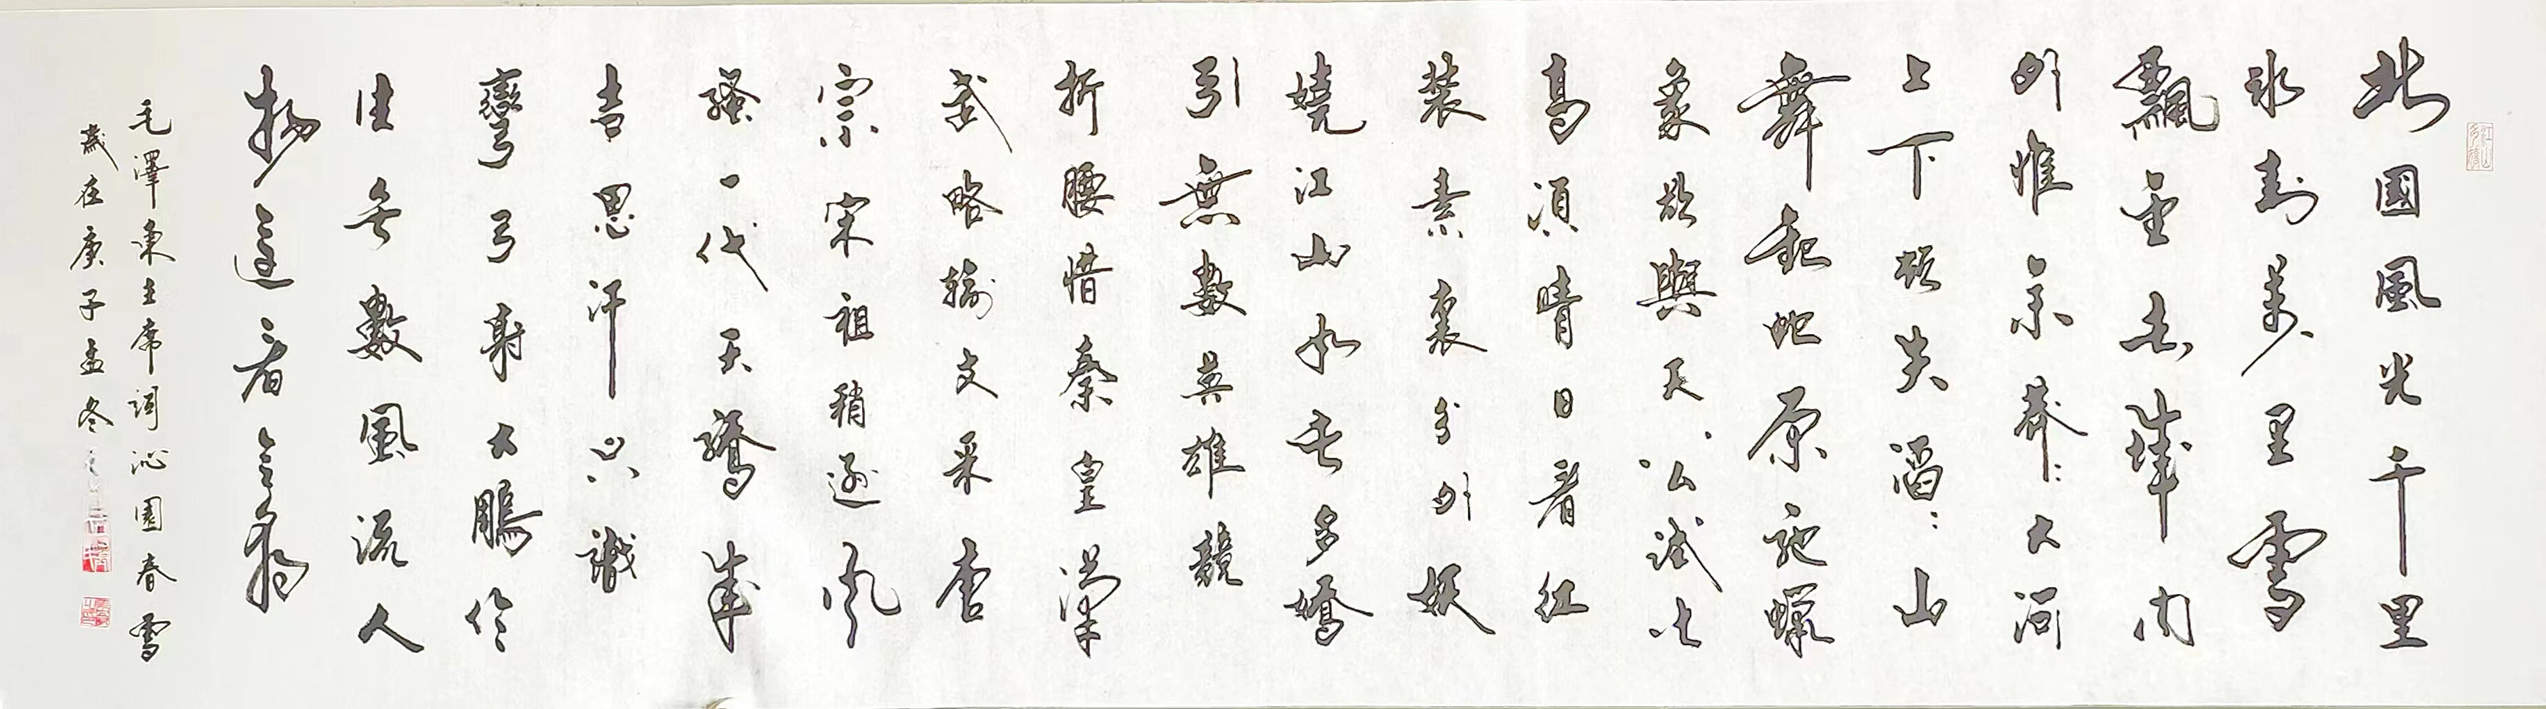 江山多嬌
北國風光千里
冰封萬里雪
飄望長城內
外惟余莽〻大河
上下頓失滔〻山
舞銀蛇原馳蠟
象欲與天公試比
高須晴日看紅
裝素裹分外妖
嬈江山如此多嬌
引無數英雄競
折腰惜秦皇漢
武略輸文采唐
宗宋祖稍遜風
騷一代天驕成
吉思汗只識
彎弓射大鵰俱
往矣數風流人
物還看今朝
毛澤東主席詞沁園春雪
歲在庚子孟冬